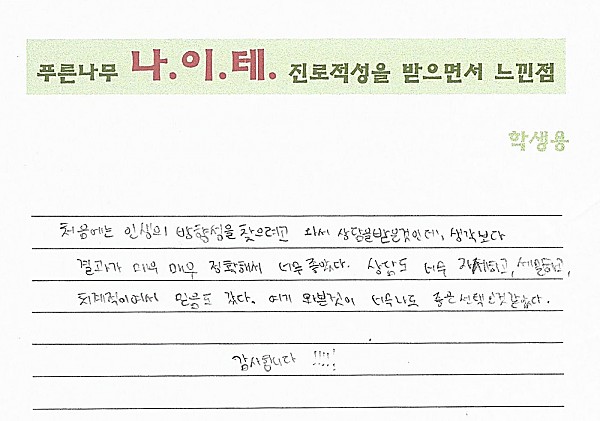 푸른나무 나.이.테. 진로적성을 받으면서 느낀점
학생용
처음에는 인생의 방향성을 찾으려고 와서 상담을받은것인데, 생각보다
결과가 매우 매우 정확해서 너무좋았다. 상담도 너무 자세하고, 세밀하고,
체계적이여서 믿음도 갔다. 여기 와본것이 너무나도 좋은선택인것같습다.
감사합니다 !!!!!